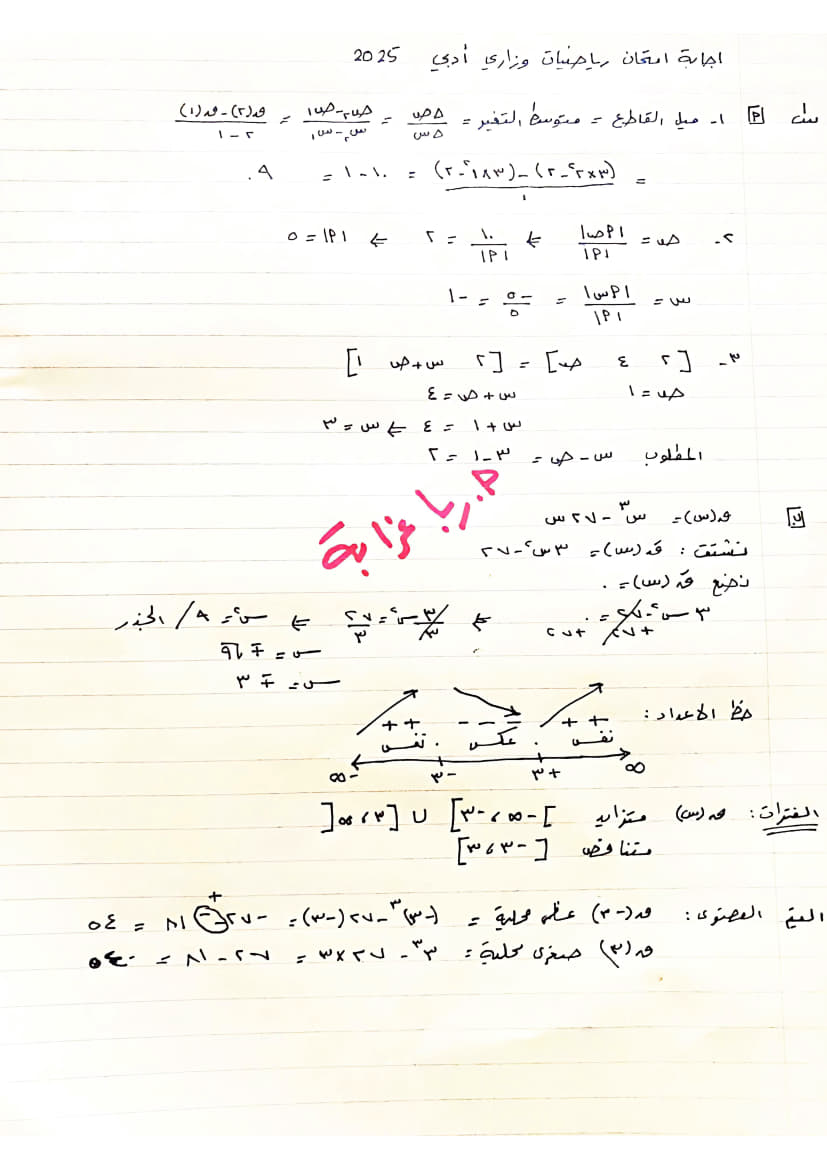 اجابة امتحان رياضيات وزاري أدبي 2025
س١ [P] ١- ميل القاطع = متوسط التغير = Δص/Δس = (ص٢-ص١)/(س٢-س١) = (ق(٢)-ق(١))/(٢-١)
= ((٣×٢²-٢)-(٣×١²-٢))/١ = ١٠-١ = ٩.
٢- ص = |Pص|/|P| ⇐ ١٠/|P| = ٢ ⇐ |P| = ٥
س = |Pس|/|P| = -٥/٥ = -١
٣- [٢ ٤ ص] = [٢ س+ص ١]
ص = ١ س+ص = ٤
س+١ = ٤ ⇐ س = ٣
المطلوب س-ص = ٣-١ = ٢
م. ربا عزابة
[ب] ق(س) = س³-٢٧س
نشتق: قَ(س) = ٣س²-٢٧
نضع قَ(س) = ٠
٣س²-٢٧ = ٠ ⇐ ٣س²/٣ = ٢٧/٣ ⇐ س² = ٩ / الجذر
+٢٧ +٢٧
س = ∓√٩
س = ∓٣
خط الاعداد:
++ --- ++
نفس . عكس . نفس
-∞ -٣ +٣ ∞
الفترات: ق(س) متزايد ]-∞،-٣] ∪ [٣،∞[
متناقص [-٣،٣]
القيم القصوى: ق(-٣) عظمى محلية = (-٣)³-٢٧(-٣) = -٢٧+٨١ = ٥٤
ق(٣) صغرى محلية = ٣³-٢٧×٣ = ٢٧-٨١ = -٥٤